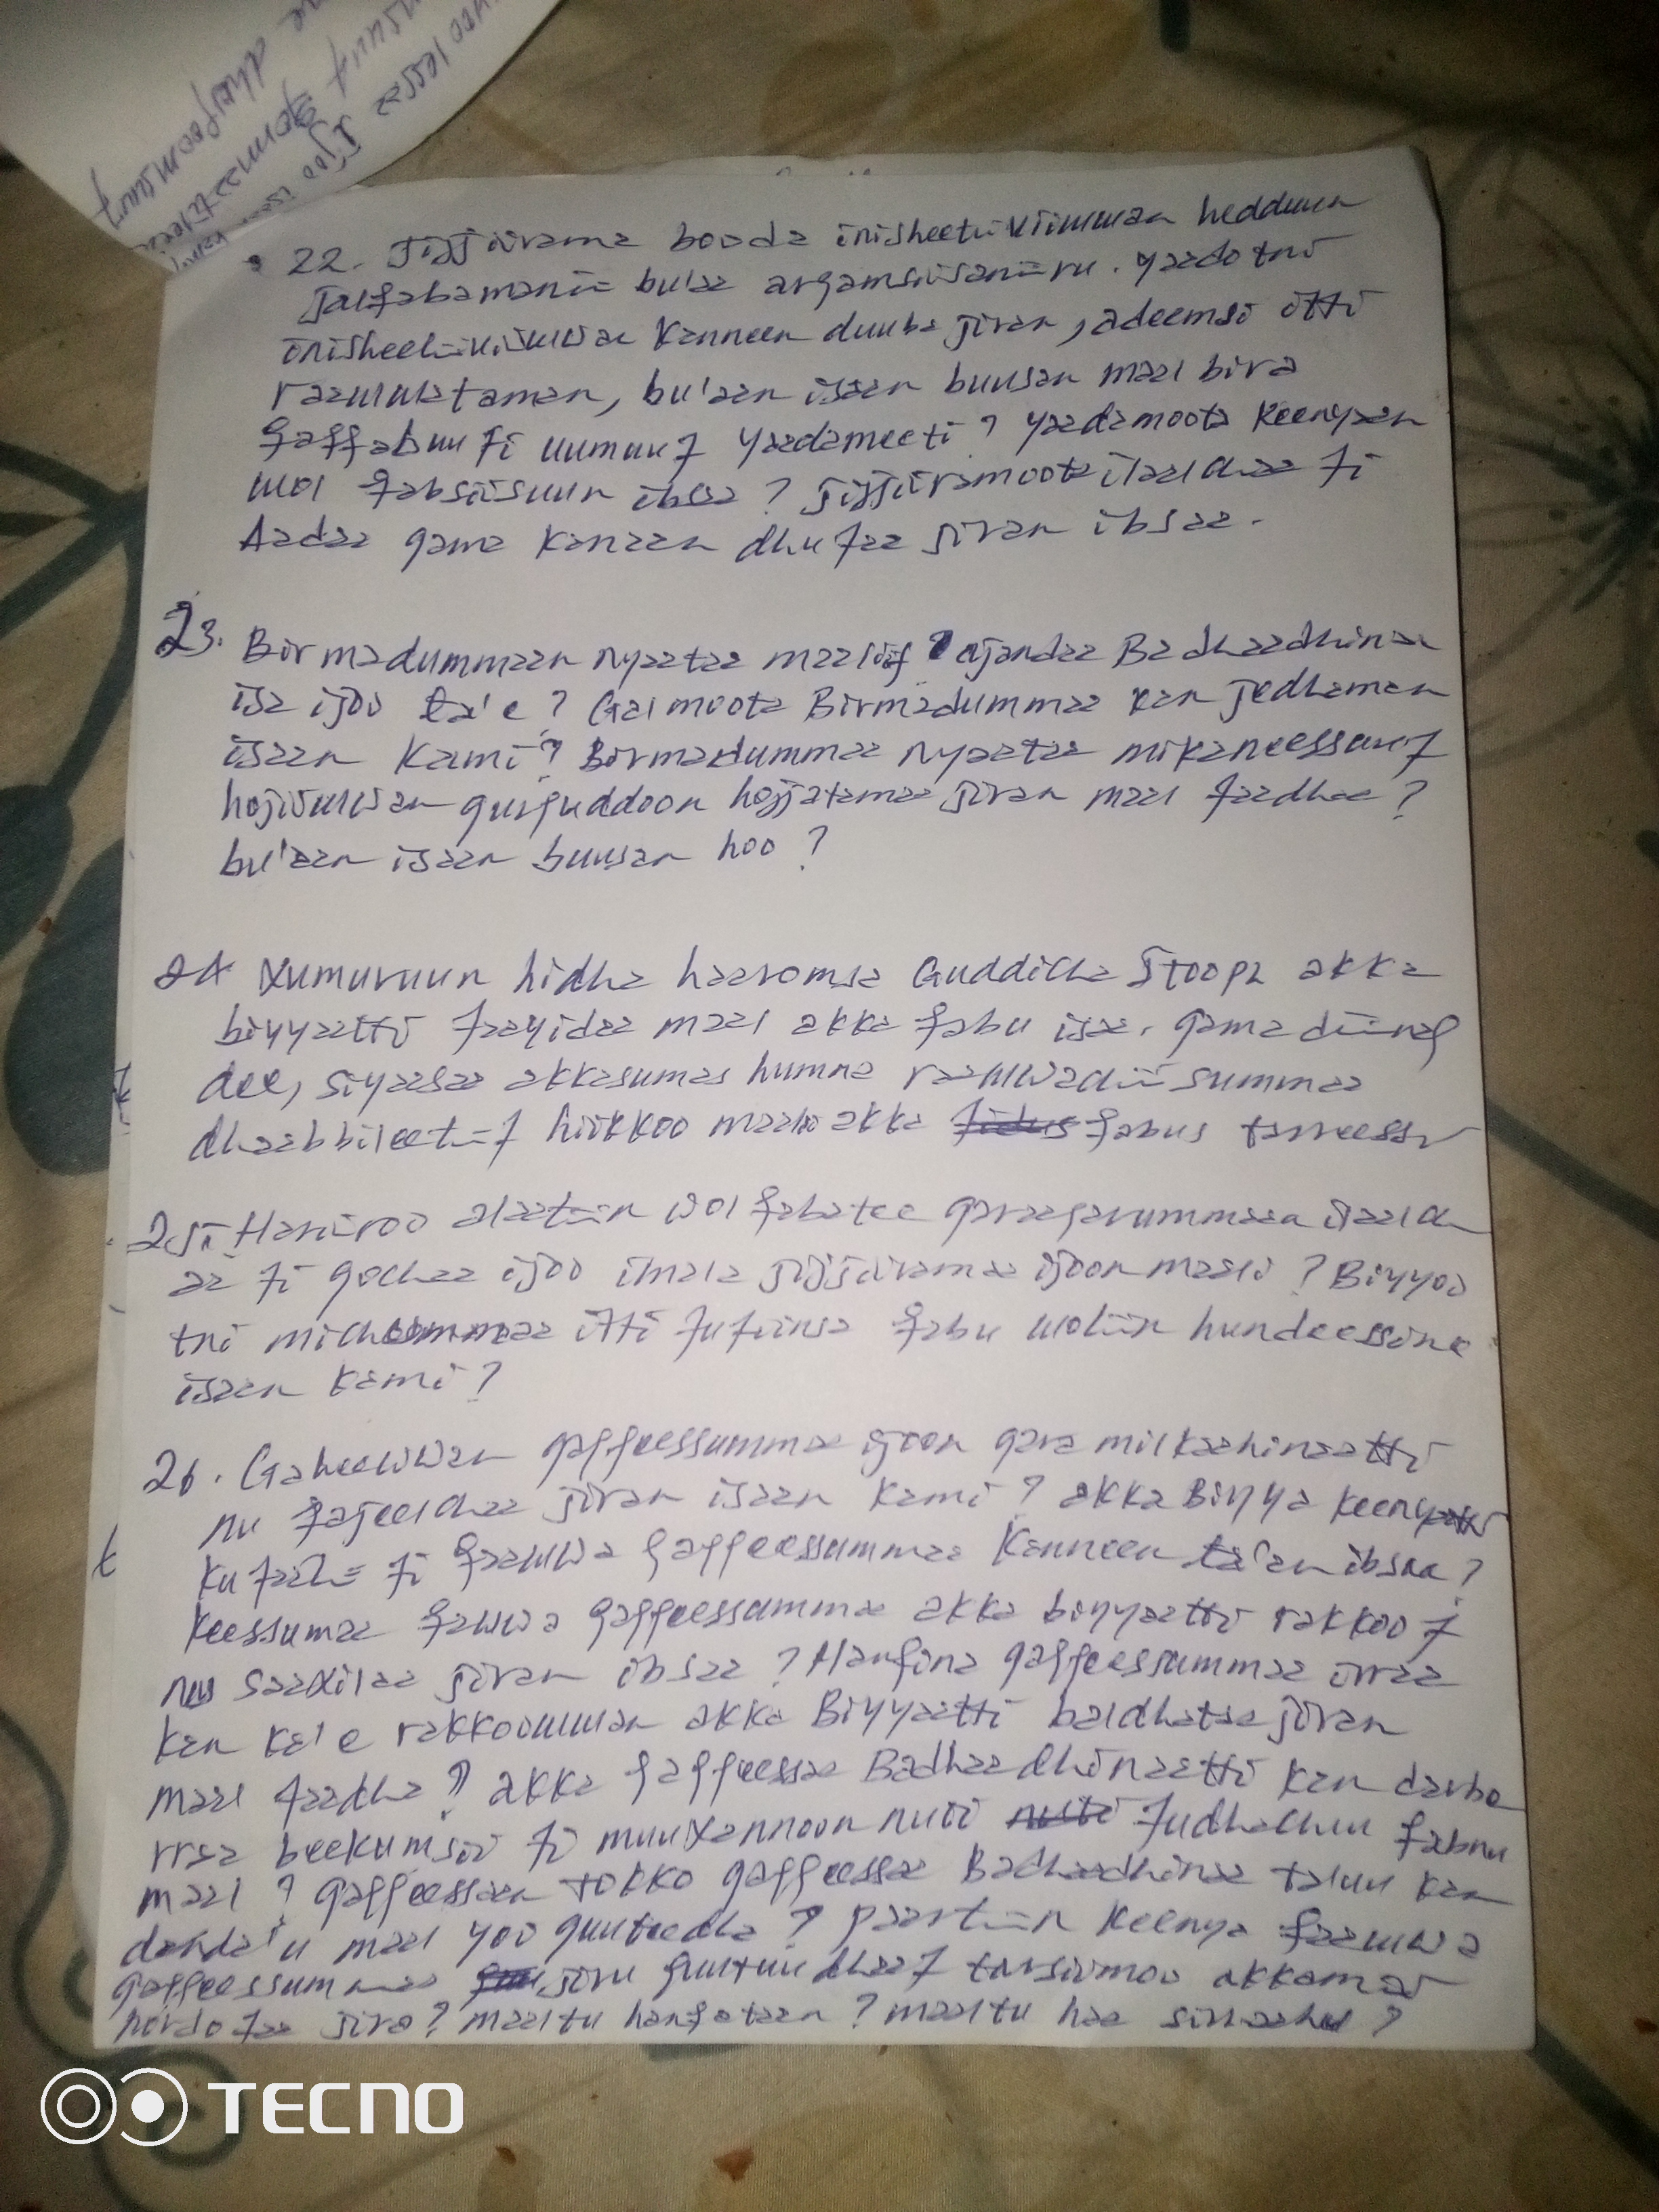 22. Jijjiirama booda inisheetiviiwwan hedduun
jalqabamanii bu'aa argamsiisaniiru. Yaadotni
inisheetiviiwwan kanneen duuba jiran, adeemsi itti
raawwataman, bu'aan isaan buusan maal bira
ga'e uumuuf yaadameeti? yaadamoota keenyaan
wal qabsiisuun ibsaa? Jijjiiramoota ilaalchaa fi
Aadaa gama kanaan dhufaa jiran ibsaa.
23. Birmadummaan nyaataa maaliif ajandaa Badhaadhinaa
isa ijoo ta'e? Galmoota Birmadummaa kan jedhaman
isaan kami? Birmadummaa nyaataa mirkaneessuuf
hojiiwwan gurguddoon hojjatamaa jiran maal faadhaa?
bu'aan isaan buusan hoo?
24 Xumuruun hidha haaromsa Guddicha Itoophi akka
biyyaatti faayidaa maal akka qabu isa. gama diinag
dee, siyaasaa akkasumas humna raawwachiisummaa
dhaabbileetiif hiikkoo maalii akka qabus tarreessi
25. Hariiroo alaatiin wal qabatee garaagarummaan ilaalch
aa fi gochaa ijoo ilmala jijjiiramaa ijoon maali? Biyyoo
tni michummaa itti fufiinsa qabu waliin hundeessine
isaan kami?
26. Gaheewwan gaggeessummaa ijoon gara milkaahinaatti
nu qajeelchaa jiran isaan kami? akka Biyya keenyatti
kufaatii fi qaawwa gaggeessummaa kanneen ta'an ibsaa?
keessumaa qawwa gaggeessummaa akka biyyaatti rakkoof
nu saaxilaa jiran ibsaa? Hanqina gaggeessummaa irraa
kan ka'e rakkoowwan akka Biyyaatti baldhataa jiran
maal faadha? akka gaggeessaa Badhaadhinaatti kan darbe
irraa beekumsii fi muuxannoon nuti fudhachuu qabnu
maal? gaggeessaan tokko gaggeessaa Badhaadhinaa ta'uu kan
danda'u maal yoo guuteedha? paartiin keenya qaawwa
gaggeessummaa jiru guutuudhaaf tarsiimoo akkamii
hordofaa jira? maaltu hanqataan? maaltu haa sirraahu?